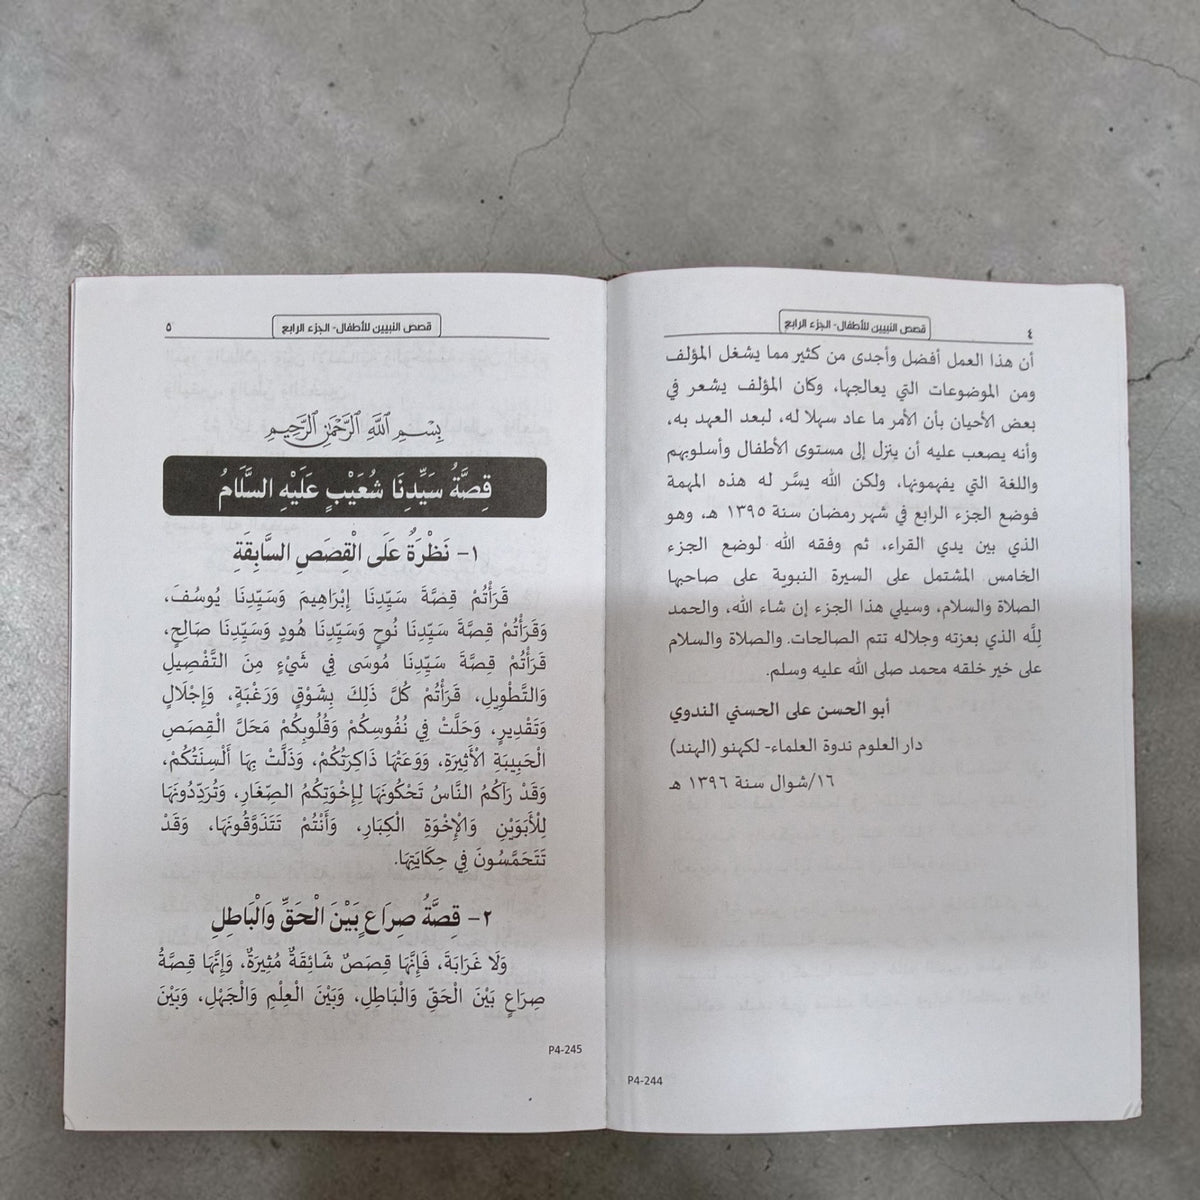 قصص النبيين للأطفال- الجزء الرابع
٤
أن هذا العمل أفضل وأجدى من كثير مما يشغل المؤلف
ومن الموضوعات التي يعالجها، وكان المؤلف يشعر في
بعض الأحيان بأن الأمر ما عاد سهلا له، لبعد العهد به،
وأنه يصعب عليه أن ينزل إلى مستوى الأطفال وأسلوبهم
واللغة التي يفهمونها، ولكن الله يسَّر له هذه المهمة
فوضع الجزء الرابع في شهر رمضان سنة ١٣٩٥ هـ، وهو
الذي بين يدي القراء، ثم وفقه الله لوضع الجزء
الخامس المشتمل على السيرة النبوية على صاحبها
الصلاة والسلام، وسيلي هذا الجزء إن شاء الله، والحمد
لِلَّه الذي بعزته وجلاله تتم الصالحات. والصلاة والسلام
على خير خلقه محمد صلى الله عليه وسلم.
أبو الحسن على الحسني الندوي
دار العلوم ندوة العلماء- لكهنو (الهند)
١٦/شوال سنة ١٣٩٦ هـ
P4-244
قصص النبيين للأطفال- الجزء الرابع
٥
بِسْمِ ٱللَّهِ ٱلرَّحْمَٰنِ ٱلرَّحِيمِ
قِصَّةُ سَيِّدِنَا شُعَيْبٍ عَلَيْهِ السَّلَامُ
١- نَظْرَةٌ عَلَى الْقِصَصِ السَّابِقَةِ
قَرَأْتُمْ قِصَّةَ سَيِّدِنَا إِبْرَاهِيمَ وَسَيِّدِنَا يُوسُفَ،
وَقَرَأْتُمْ قِصَّةَ سَيِّدِنَا نُوحٍ وَسَيِّدِنَا هُودٍ وَسَيِّدِنَا صَالِحٍ،
قَرَأْتُمْ قِصَّةَ سَيِّدِنَا مُوسَى فِي شَيْءٍ مِنَ التَّفْصِيلِ
وَالتَّطْوِيلِ، قَرَأْتُمْ كُلَّ ذَلِكَ بِشَوْقٍ وَرَغْبَةٍ، وَإِجْلَالٍ
وَتَقْدِيرٍ، وَحَلَّتْ فِي نُفُوسِكُمْ وَقُلُوبِكُمْ مَحَلَّ الْقِصَصِ
الْحَبِيبَةِ الْأَثِيرَةِ، وَوَعَتْهَا ذَاكِرَتُكُمْ، وَذَلَّتْ بِهَا أَلْسِنَتُكُمْ،
وَقَدْ رَآكُمُ النَّاسُ تَحْكُونَهَا لِإِخْوَتِكُمُ الصِّغَارِ، وَتُرَدِّدُونَهَا
لِلْأَبَوَيْنِ وَالْإِخْوَةِ الْكِبَارِ، وَأَنْتُمْ تَتَذَوَّقُونَهَا، وَقَدْ
تَتَحَمَّسُونَ فِي حِكَايَتِهَا.
٢- قِصَّةُ صِرَاعٍ بَيْنَ الْحَقِّ وَالْبَاطِلِ
وَلَا غَرَابَةَ، فَإِنَّهَا قِصَصٌ شَائِقَةٌ مُثِيرَةٌ، وَإِنَّهَا قِصَّةُ
صِرَاعٍ بَيْنَ الْحَقِّ وَالْبَاطِلِ، وَبَيْنَ الْعِلْمِ وَالْجَهْلِ، وَبَيْنَ
P4-245